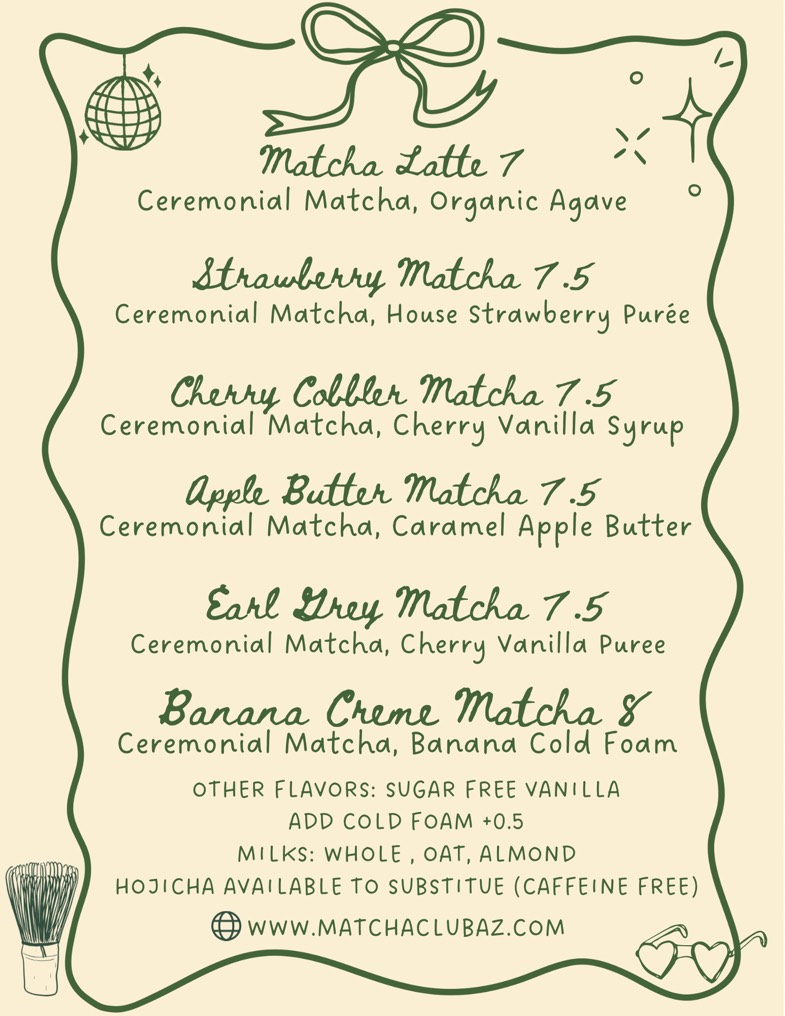 Matcha Latte 7
Ceremonial Matcha, Organic Agave
Strawberry Matcha 7.5
Ceremonial Matcha, House Strawberry Purée
Cherry Cobbler Matcha 7.5
Ceremonial Matcha, Cherry Vanilla Syrup
Apple Butter Matcha 7.5
Ceremonial Matcha, Caramel Apple Butter
Earl Grey Matcha 7.5
Ceremonial Matcha, Cherry Vanilla Puree
Banana Creme Matcha 8
Ceremonial Matcha, Banana Cold Foam
OTHER FLAVORS: SUGAR FREE VANILLA
ADD COLD FOAM +0.5
MILKS: WHOLE , OAT, ALMOND
HOJICHA AVAILABLE TO SUBSTITUE (CAFFEINE FREE)
WWW.MATCHACLUBAZ.COM